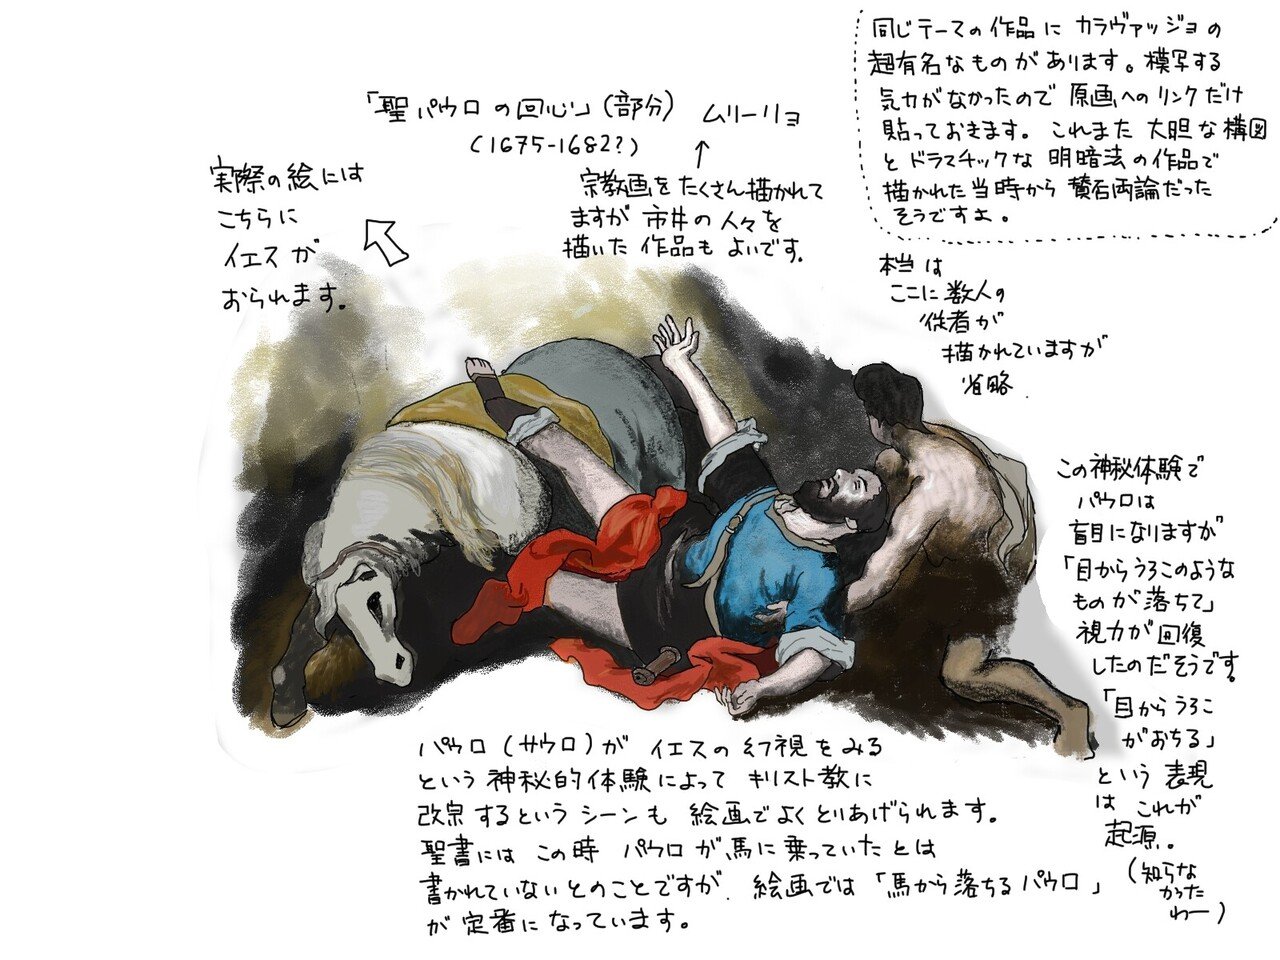 「聖パウロの回心」（部分） ムリーリョ
（1675-1682?）
宗教画をたくさん描かれて
ますが 市井の人々を
描いた 作品も よいです。
実際の絵には
こちらに
イエスが
おられます。
同じテーマの作品に カラヴァッジョの
超有名なものがあります。模写する
気力がなかったので 原画へのリンクだけ
貼っておきます。これまた 大胆な構図
と ドラスチックな 明暗法の作品で
描かれた当時から 賛否両論だった
そうですよ。
本当は
ここに数人の
従者が
描かれていますが
省略.
この神秘体験で
パウロは
盲目になりますが
「目からうろこのような
ものが落ちて」
視力が回復
したのだそうです。
「目からうろこ
がおちる」
という表現
は これが
起源.
（知らな
かった
わー）
パウロ（サウロ）が イエスの幻視をみる
という 神秘的体験によって キリスト教に
改宗するという シーンも 絵画でよくとりあげられます。
聖書には この時 パウロが馬に乗っていたとは
書かれていないとのことですが. 絵画では「馬から落ちるパウロ」
が定番になっています。